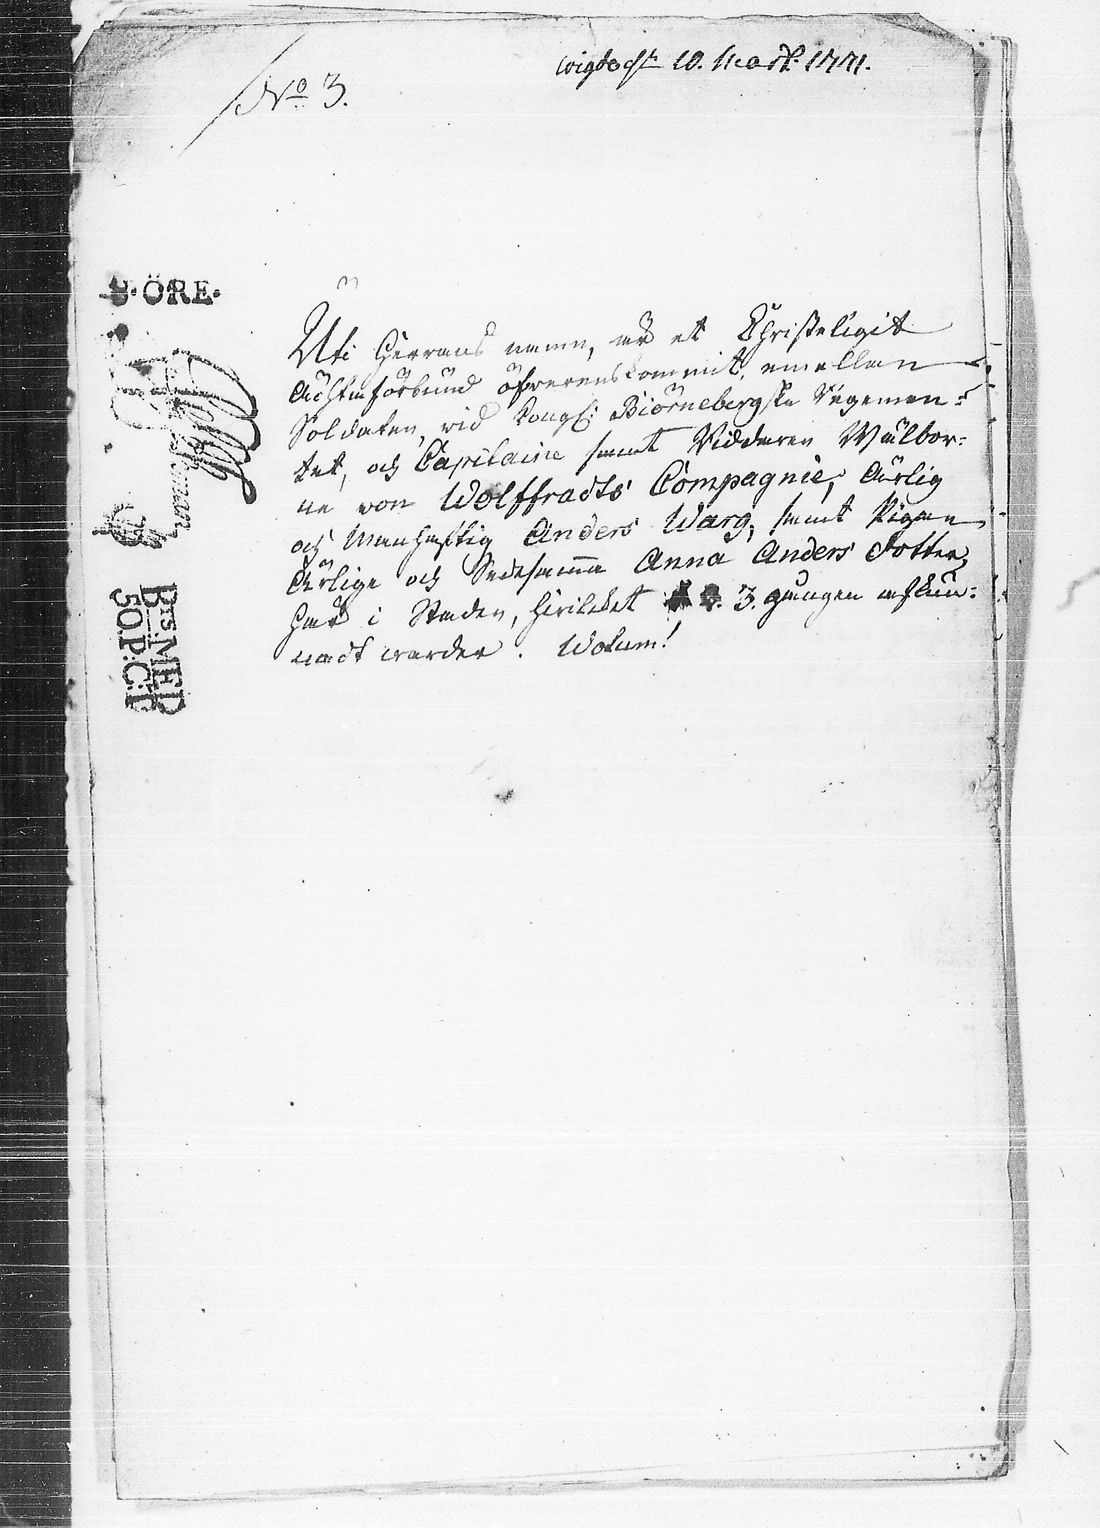 No 3.
wigde d. 10. Mart. 1771.
8. ÖRE.
Uti Herrans namn, är et Christeligit
Ächtenskapsförbund öfwerenskommit, emellan
Soldaten, wid Kongl: Biörneborgske Regemen:
tet, och Capitaine samt Riddaren Wälbor:
ne von Wolffradts Compagnie, Ärlig
och Manhaftig Anders Warg, samt Pigan
Ärlige och Sedesamma Anna Anders Dotter,
här i Staden, hwilcket 3. gången afkun:
nadt warder. Wotum!
50.P:C: